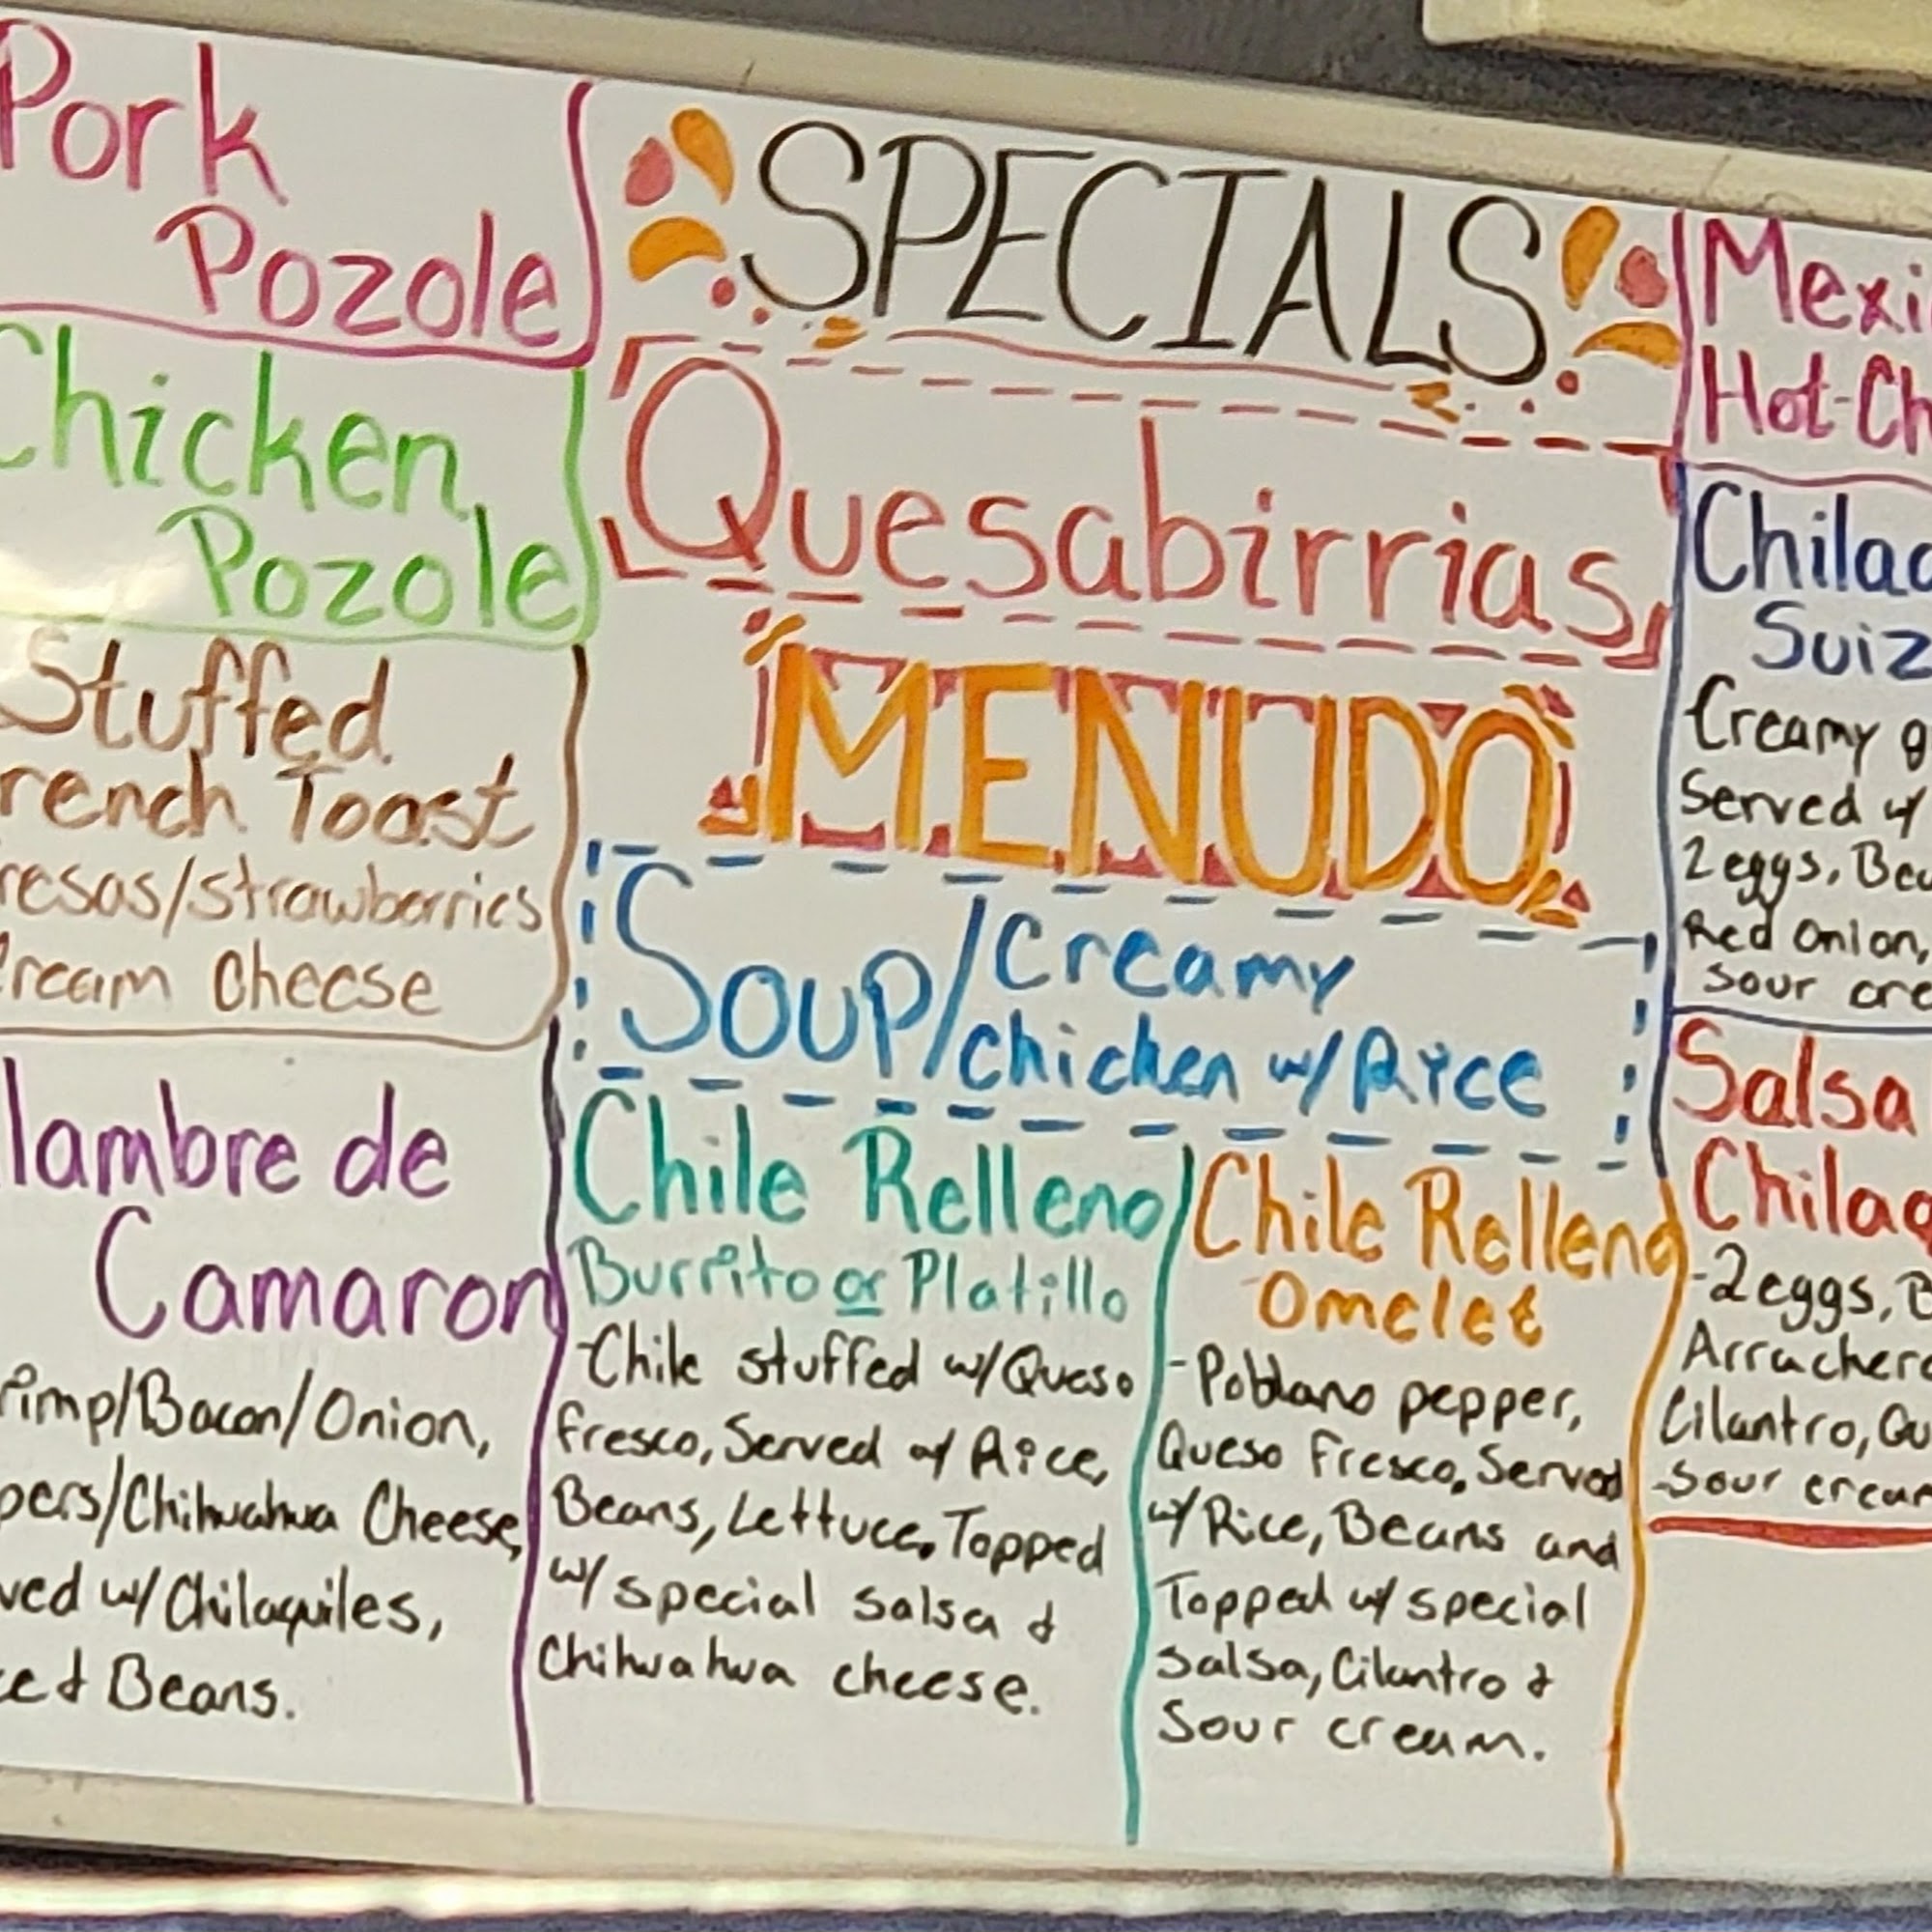 Pork
Pozole
Chicken
Pozole
Stuffed
rench Toast
resas/strawberries
Cream Cheese
lambre de
Camaron
rimp/Bacon/Onion,
pers/Chihuahua Cheese,
ved w/Chilaquiles,
ce & Beans.
SPECIALS
Quesabirrias
MENUDO
Soup/Creamy
chicken w/Rice
Chile Relleno
Burrito or Platillo
-Chile stuffed w/Queso
fresco, Served w/ Rice,
Beans, Lettuce, Topped
w/special salsa &
Chihuahua cheese.
Chile Relleno
Omelet
-Poblano pepper,
Queso Fresco, Served
w/Rice, Beans and
Topped w/special
salsa, Cilantro &
Sour cream.
Mexi
Hot-Ch
Chilaq
Suiz
Creamy g
Served w/
2 eggs, Bea
Red Onion,
sour cre
Salsa
Chilaq
-2 eggs, B
Arrachera
Cilantro, Qu
-Sour cream